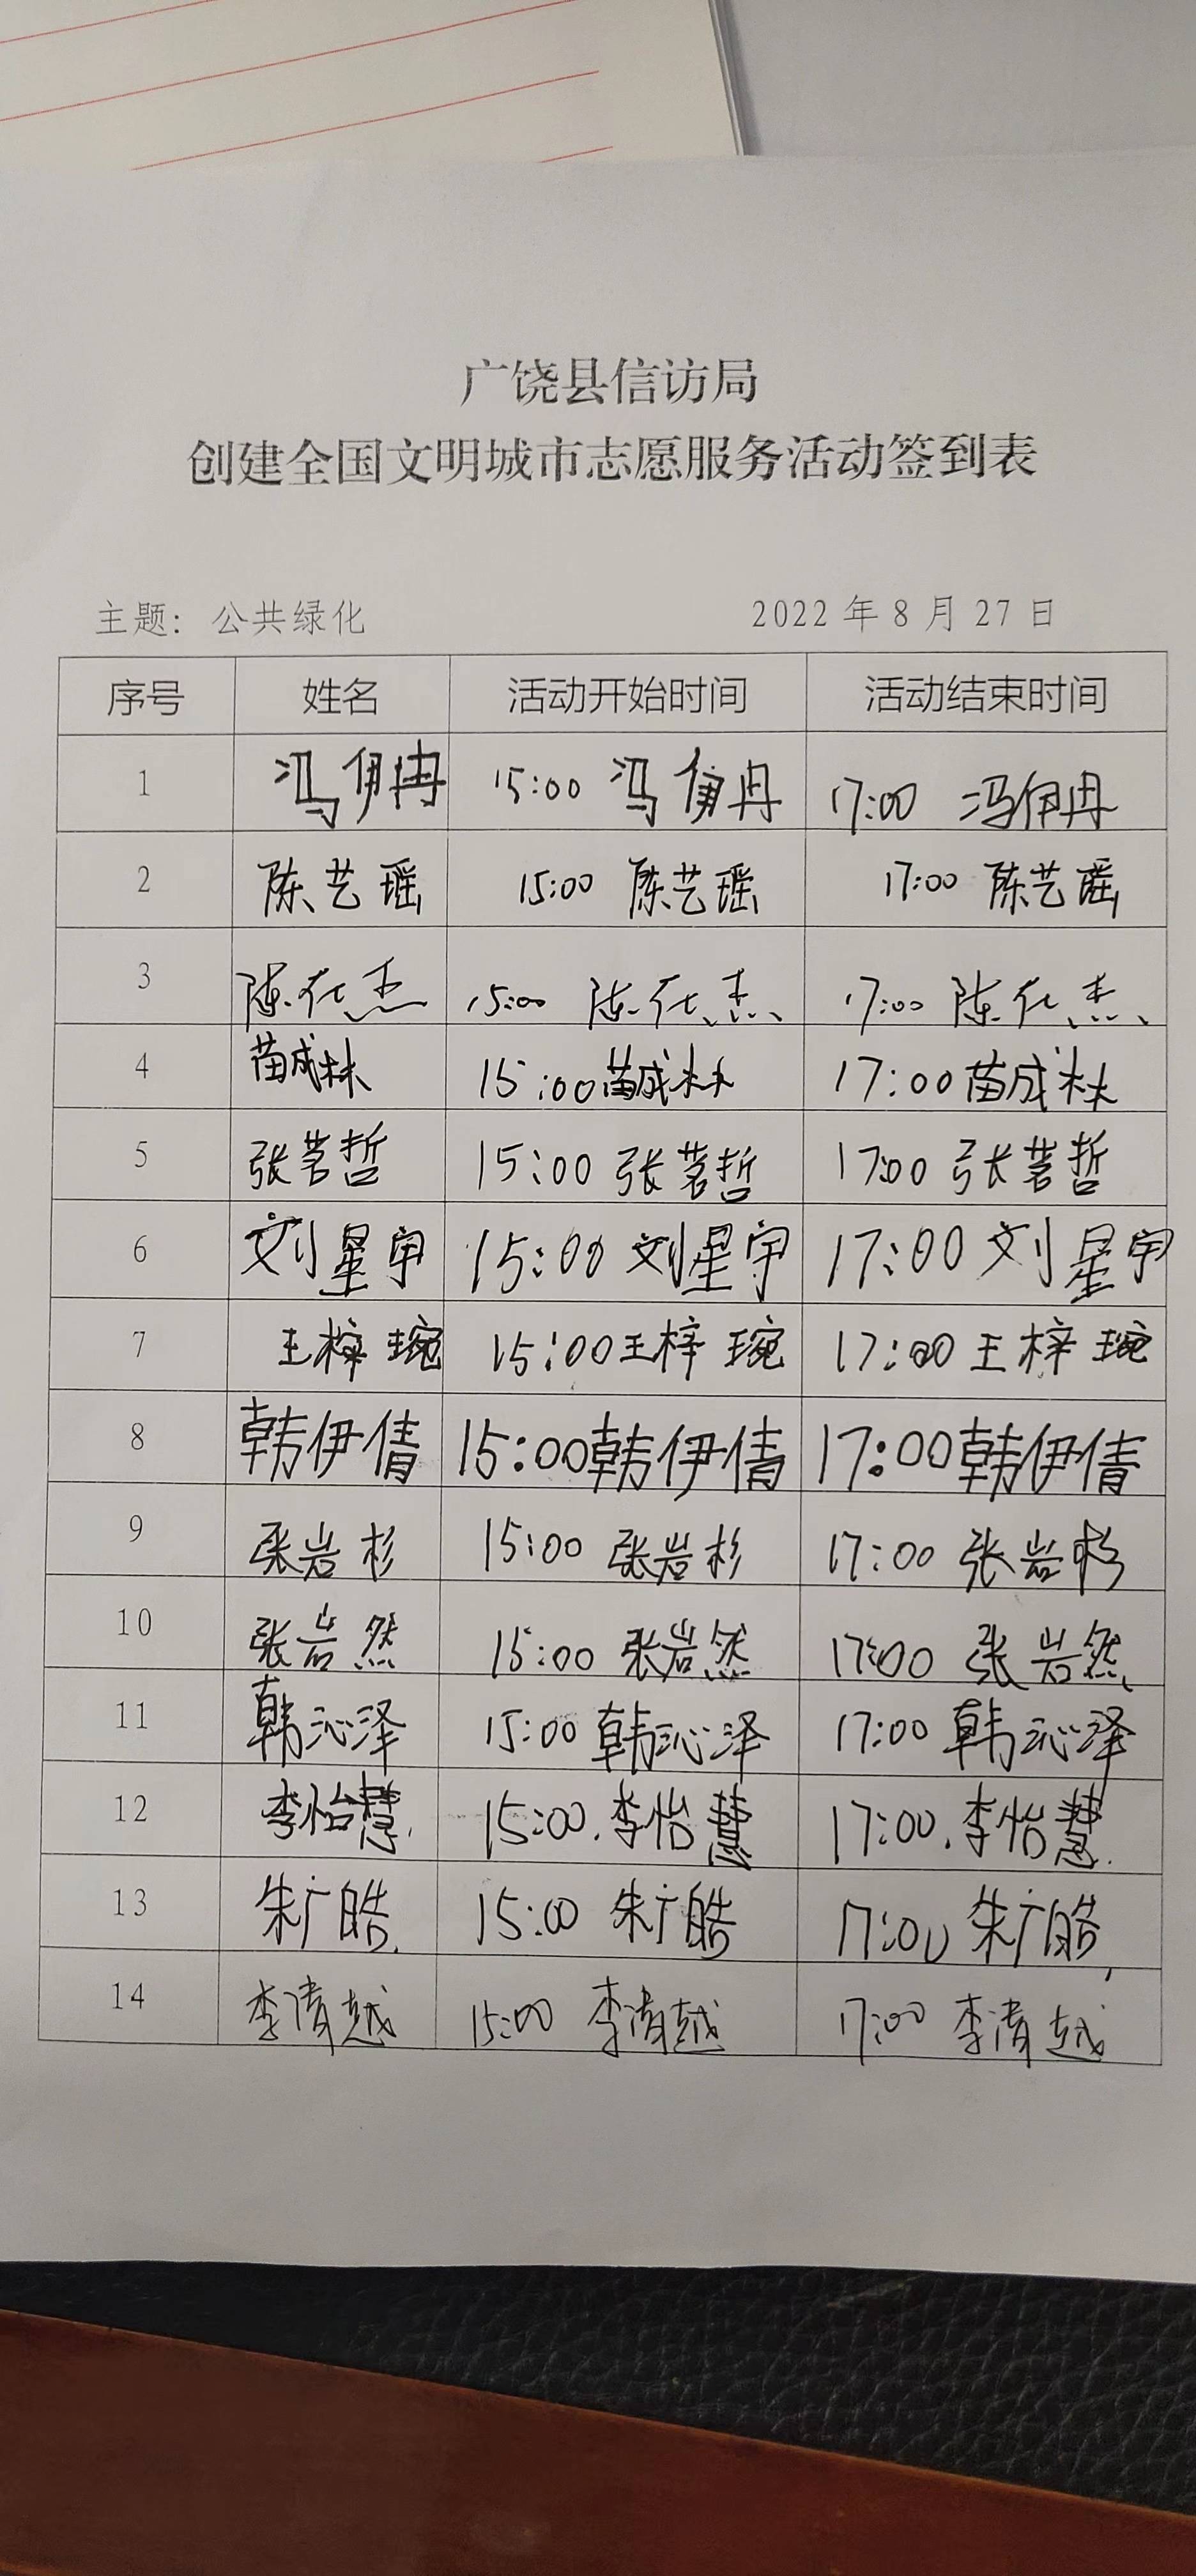 广饶县信访局
创建全国文明城市志愿服务活动签到表
主题：公共绿化 2022年8月27日
序号 姓名 活动开始时间 活动结束时间
1 冯伊冉 15:00 冯伊冉 17:00 冯伊冉
2 陈艺瑶 15:00 陈艺瑶 17:00 陈艺瑶
3 陈化杰 15:00 陈化杰 17:00 陈化杰
4 苗成林 15:00 苗成林 17:00 苗成林
5 张茗哲 15:00 张茗哲 17:00 张茗哲
6 刘星宇 15:00 刘星宇 17:00 刘星宇
7 王梓琬 15:00 王梓琬 17:00 王梓琬
8 韩伊倩 15:00 韩伊倩 17:00 韩伊倩
9 张岩杉 15:00 张岩杉 17:00 张岩杉
10 张岩然 15:00 张岩然 17:00 张岩然
11 韩沁泽 15:00 韩沁泽 17:00 韩沁泽
12 李怡慧. 15:00.李怡慧 17:00.李怡慧.
13 朱广皓 15:00 朱广皓 17:00 朱广皓
14 李清越 15:00 李清越 17:00 李清越